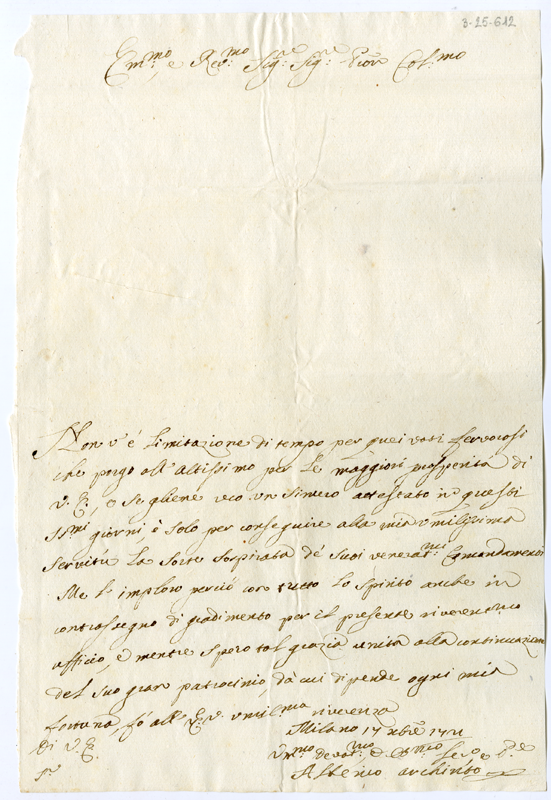 3-25-612
Em.mo, e Rev.mo Sig.re Sig.re Pron Col.mo
Non v'é limitazione di tempo per quei voti fervorosi
che porgo all'Altissimo per le maggiori prosperità di
V. E., e se gliene reco un sincero attestato in questi
SS.mi giorni, è solo per conseguire alla mia umilissima
servitù la sorte sospirata de' suoi venerat.mi Comandamenti
Me l'imploro perciò con tutto lo spirito anche in
contrassegno di gradimento per il presente riverente
ufficio, e mentre spero tal grazia unita alla continuazione
del suo gran patrocinio da cui dipende ogni mia
fortuna, fó all'E. V. umil.ma riverenza
Di V. E. Milano 17 xbre
Um.mo devot.mo Ser.e
Alberico Archinto